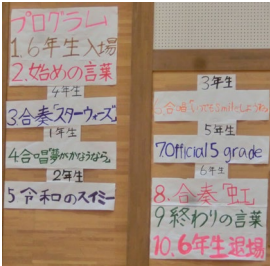 プログラム
1.6年生入場
2.始めの言葉
4年生
3合奏「スターウォーズ」
1年生
4合唱「夢がかなうなら」
2年生
5令和のスイミー
3年生
5年生
7.Official 5 grade
6年生
8.合奏「虹」
9終わりの言葉
10.6年生退場